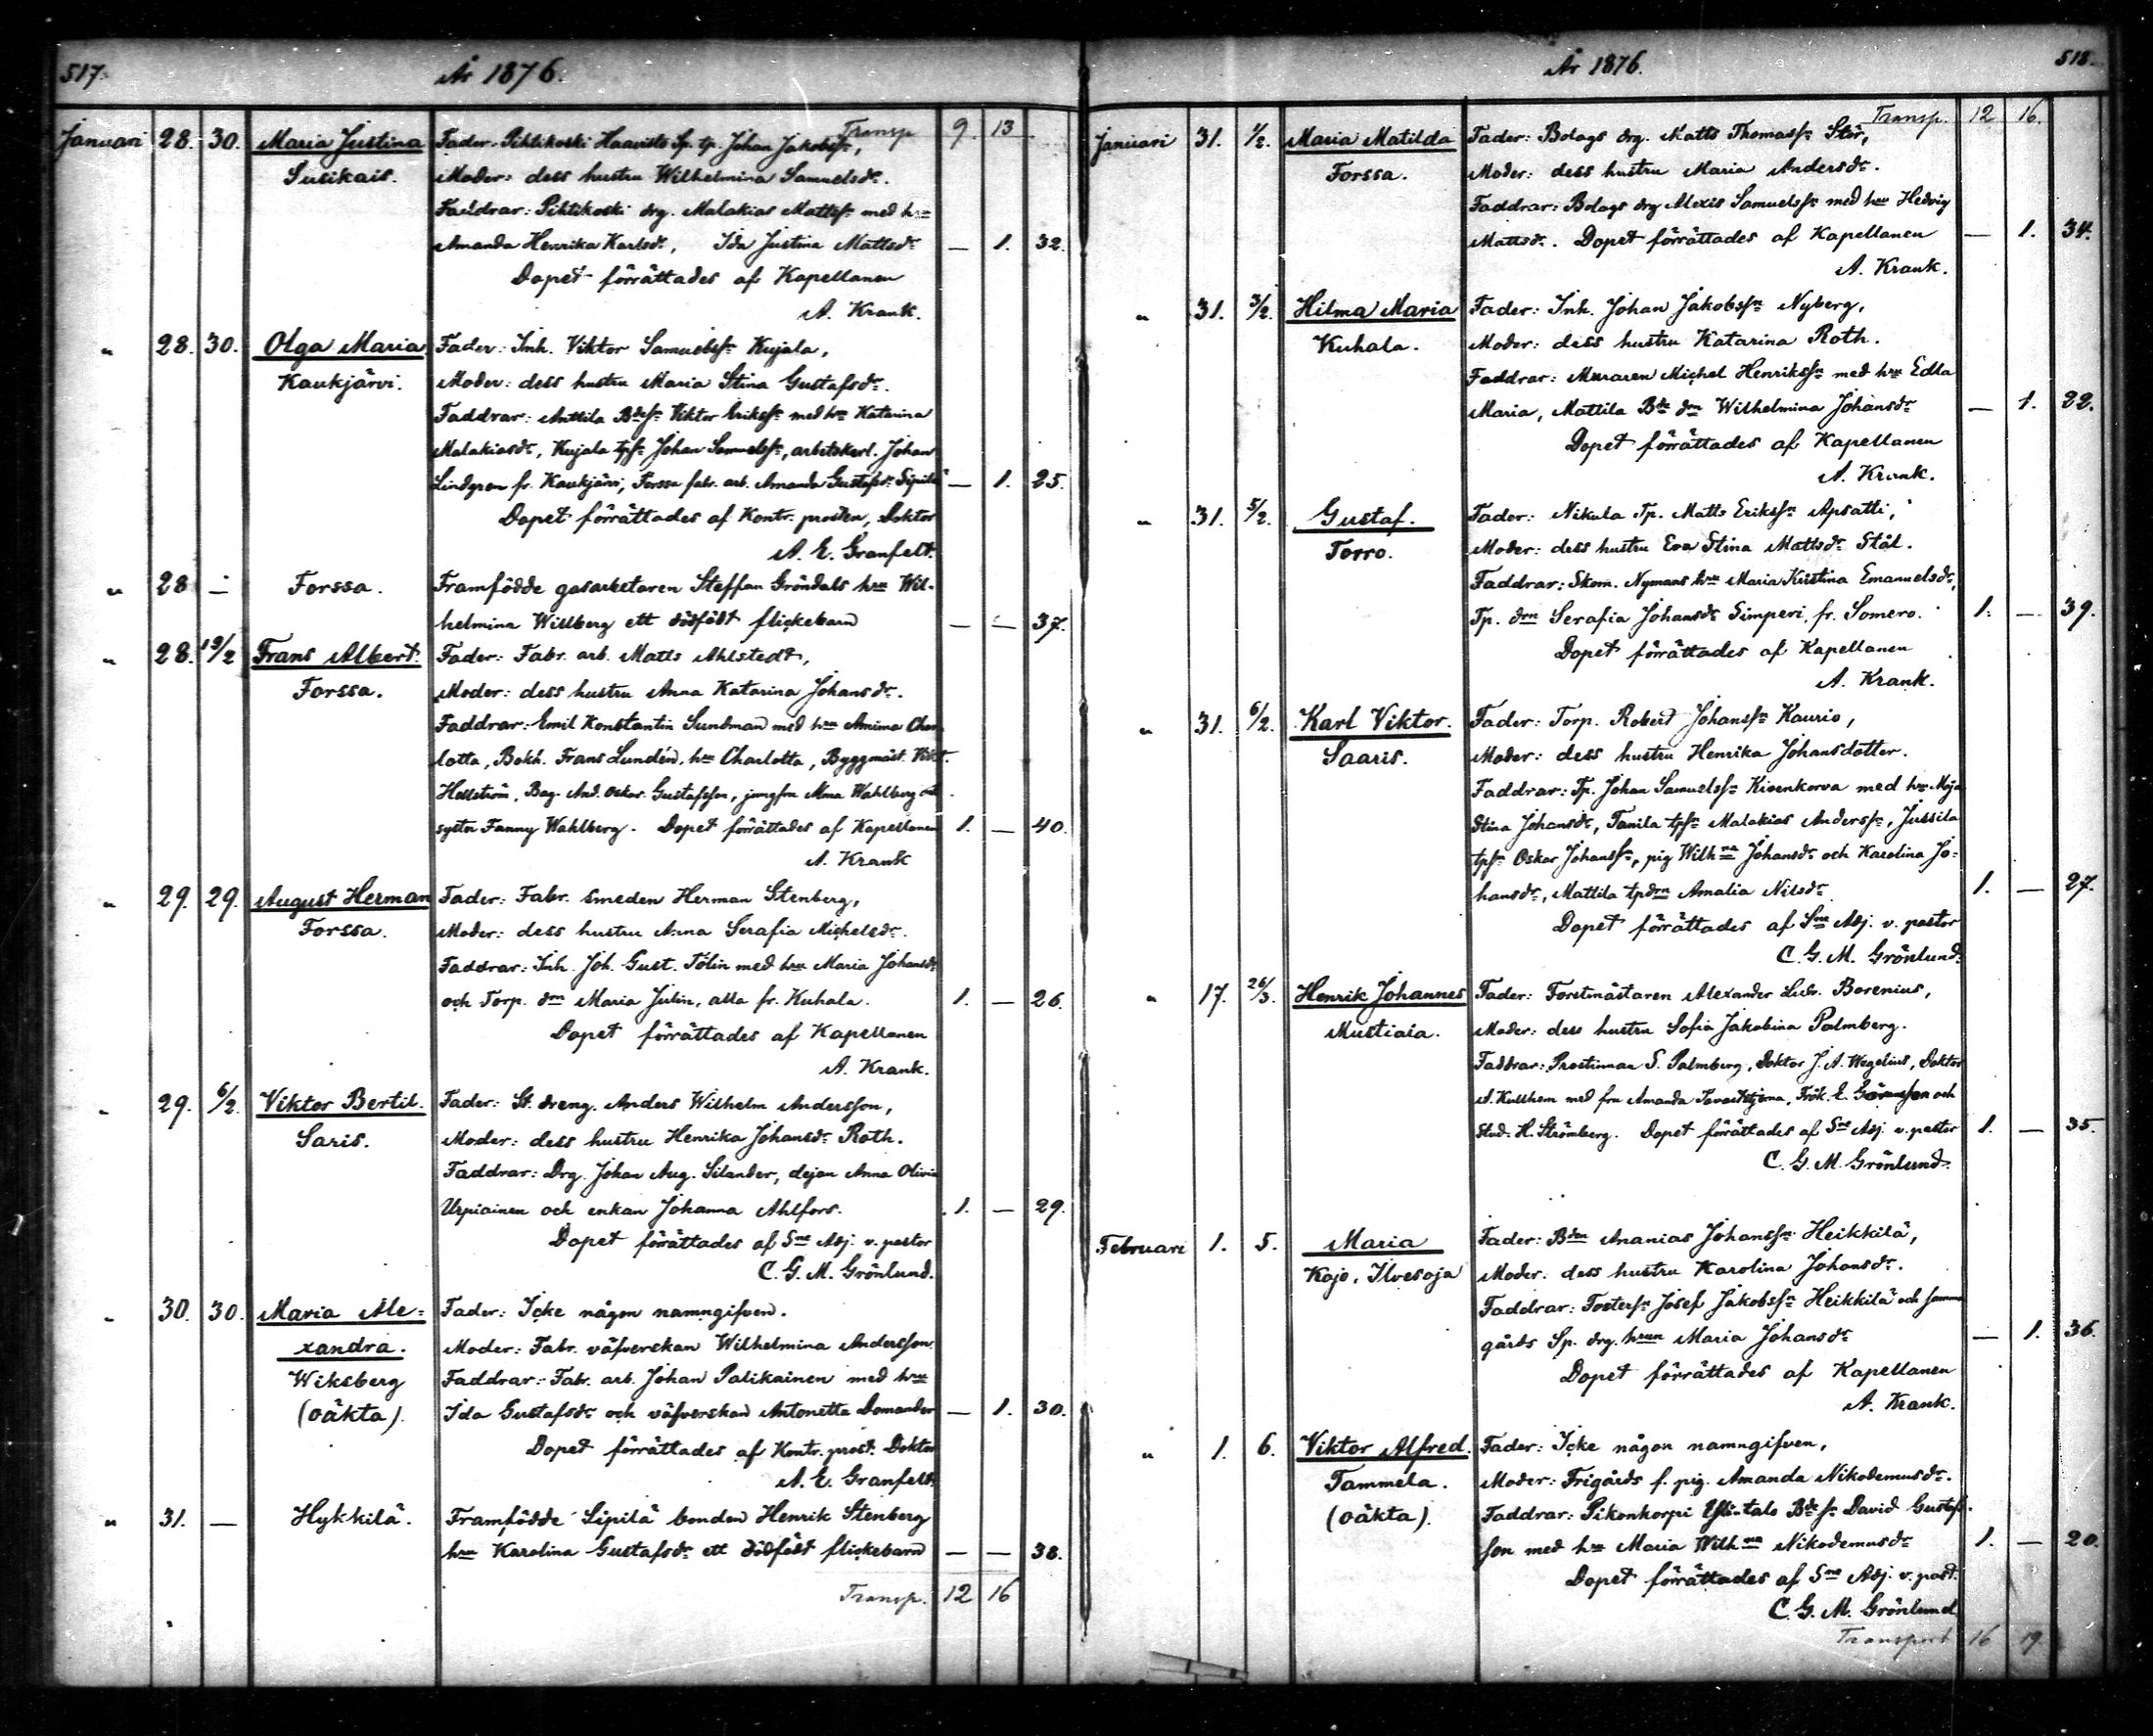 517.
År 1876.
Transp. 9. 13
Januari 28. 30. Maria Justina Fader: Pihtikoski Haavisto Sp. tp. Johan Jakobsſn,
Susikais. Moder: dess hustru Wilhelmina Samuelsdr.
Faddrar: Pihtikoski drg. Malakias Mattsſn med hru
Amanda Henrika Karlsdr, Ida Justina Mattsdr — 1. 32.
Dopet förrättades af Kapellanen
A. Krank.
" 28. 30. Olga Maria Fader: Inh. Viktor Samuelsſn Kujala,
Kaukjärvi. Moder: dess hustru Maria Stina Gustafsdr.
Faddrar: Anttila Bdeſn Viktor Eriksſn med hru Katarina
Malakiasdr, Kujala tpſn Johan Samuelsſn, arbetskarl. Johan
Lindgren fr. Kaukjärvi, Forssa fabr. arb. Amanda Gustafsdr Sipilä — 1. 25.
Dopet förrättades af Kontr. prosten, Doktor
A. E. Granfelt.
" 28 — Forssa. Framfödde gasarbetaren Steffan Gröndals hru Wil-
helmina Willberg ett dödfödt flickebarn — — 37.
" 28. 19/2 Frans Albert. Fader: Fabr. arb. Matts Ahlstedt,
Forssa. Moder: dess hustru Anna Katarina Johansdr.
Faddrar: Emil Konstantin Sundman med hru Amima Char-
lotta, Bokh. Frans Lundén, hru Charlotta, Byggmäst. Vikt.
Hellström, Bag. And. Oskar Gustafsſon, jungfru Alma Wahlberg och
syster Fanny Wahlberg. Dopet förrättades af Kapellanen 1. — 40.
A. Krank
" 29. 29. August Herman Fader: Fabr. smeden Herman Stenberg,
Forssa. Moder: dess hustru Anna Serafia Michelsdr.
Faddrar: Inh. Joh. Gust. Tölin med hru Maria Johansdr
och Torp. drn Maria Julin, alla fr. Kuhala. 1. — 26.
Dopet förrättades af Kapellanen
A. Krank.
" 29. 6/2. Viktor Bertil. Fader: St. dreng. Anders Wilhelm Andersſon,
Saris. Moder: dess hustru Henrika Johansdr Roth.
Faddrar: Drg. Johan Aug. Silander, dejan Anna Olivia
Urpiainen och enkan Johanna Ahlfors. 1. — 29.
Dopet förrättades af Sne Adj. v. pastor
C. G. M. Grönlund.
" 30. 30. Maria Ale= Fader: Icke någon namngifven.
xandra. Moder: Fabr. väfverskan Wilhelmina Andersſon.
Wiksberg Faddrar: Fabr. arb. Johan Palikainen med hru
(oäkta). Ida Gustafsdr och väfverskan Antonetta Domander — 1. 30.
Dopet förrättades af Kontr. prost. Doktor
A. E. Granfelt.
" 31. — Hykkilä. Framfödde Sipilä bonden Henrik Stenberg
hru Karolina Gustafsdr ett dödfödt flickebarn — — 38.
Transp. 12 16
År 1876.
518.
Transp. 12 16.
Januari 31. 1/2. Maria Matilda Fader: Bolags drg. Matts Thomasſn Stör,
Forssa. Moder: dess hustru Maria Andersdr.
Faddrar: Bolags drg Alexis Samuelsſn med hru Hedvig
Mattsdr. Dopet förrättades af Kapellanen — 1. 34.
A. Krank.
" 31. 3/2. Hilma Maria Fader: Inh. Johan Jakobsſn Nyberg,
Kuhala. Moder: dess hustru Katarina Roth.
Faddrar: Muraren Michel Henriksſn med hru Edla
Maria, Mattila Bde drn Wilhelmina Johansdr — 1. 22.
Dopet förrättades af Kapellanen
A. Krank.
" 31. 5/2. Gustaf. Fader: Nikula Tp. Matts Eriksſn Apsatti,
Torro. Moder: dess hustru Eva Stina Mattsdr Stål.
Faddrar: Skom. Nymans hru Maria Kristina Emanuelsdr,
Tp. drn Serafia Johansdr Simperi fr. Somero. 1. — 39.
Dopet förrättades af Kapellanen
A. Krank.
" 31. 6/2. Karl Viktor. Fader: Torp. Robert Johansſn Kaurio,
Saaris. Moder: dess hustru Henrika Johansdotter.
Faddrar: Tp. Johan Samuelsſn Kivenkorva med hru Maja
Stina Johansdr, Tanila tpſn Malakias Andersſn, Jussila
tpſn Oskar Johansſn, pig Wilhna Johansdr och Karolina Jo-
hansdr, Mattila tpdrn Amalia Nilsdr 1. — 27.
Dopet förrättades af Sne Adj. v. pastor
C. G. M. Grönlund.
" 17. 26/3. Henrik Johannes Fader: Forstmästaren Alexander Ludv. Borenius,
Mustiala. Moder: dess hustru Sofia Jakobina Palmberg.
Faddrar: Prostinnan S. Palmberg, Doktor J. A. Wegelius, Doktor
A. Kullhem med fru Amanda Tavaststjerna, Frök. E. Göransſon och
Stud. H. Strömberg. Dopet förrättades af Sne Adj. v. pastor 1. — 35.
C. G. M. Grönlund.
Februari 1. 5. Maria Fader: Bden Ananias Johansſn Heikkilä,
Kojo, Ilvesoja Moder: dess hustru Karolina Johansdr.
Faddrar: Fosterſn Josef Jakobsſn Heikkilä och samma
gårds Sp. drg. hrun Maria Johansdr — 1. 36.
Dopet förrättades af Kapellanen
A. Krank.
" 1. 6. Viktor Alfred. Fader: Icke någon namngifven,
Tammela. Moder: Frigårds f. pig. Amanda Nikodemusdr.
(oäkta). Faddrar: Pikonkorpi talo Bdeſn David Gustaf-
ſon med hru Maria Wilhna Nikodemusdr 1. — 20.
Dopet förrättades af Sne Adj. v. past.
C. G. M. Grönlund
Transport 16 19.